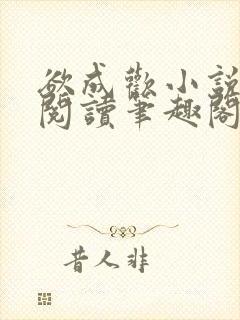 欲成歡小說
閱讀筆趣閣
昔人非